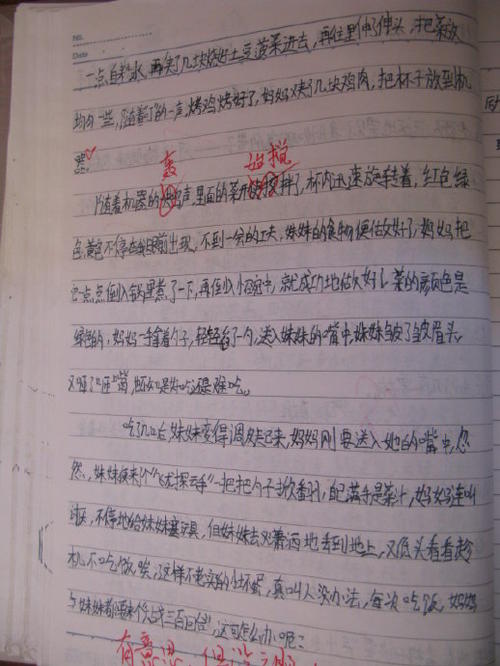 No.
Date
一点自来水,再夹了几块烧好土豆菠菜进去,再往里伸了伸头,把菜放
均匀一些,随着"丁"的一声,烤鸡烤好了,妈妈又夹了几块鸡肉,把杯子放到机
器。
轰 搅
随着机器的声,里面的菜开始搅拌了,杯内迅速旋转着,红色绿
色黄色不停在眼前出现,不到一分的工夫,妹妹的食物便做好了,妈妈把
它一点点倒入锅里煮了一下,再倒入小碗中,就成功地做好了菜的颜色是
绿色的,妈妈一手拿着勺子,轻轻舀了一勺,送入妹妹的嘴中,妹妹皱了皱眉头,
又咂了咂嘴,好吃还是难吃。
吃了几口后妹妹变得调皮起来,妈妈刚要送入她的嘴中,忽
然,妹妹来个"龙探云手"一把把勺子掀翻,自己满手是菜汁,妈妈连叫
不停地给妹妹塞玩具,但妹妹去又潇洒地丢到地上,又低头看看趁
机不吃饭唉,这样不老实的小坏蛋,真叫人没办法,每次吃饭,妈妈
与妹妹都要来个大战三百回合,这可怎么办呢?
有意思,但